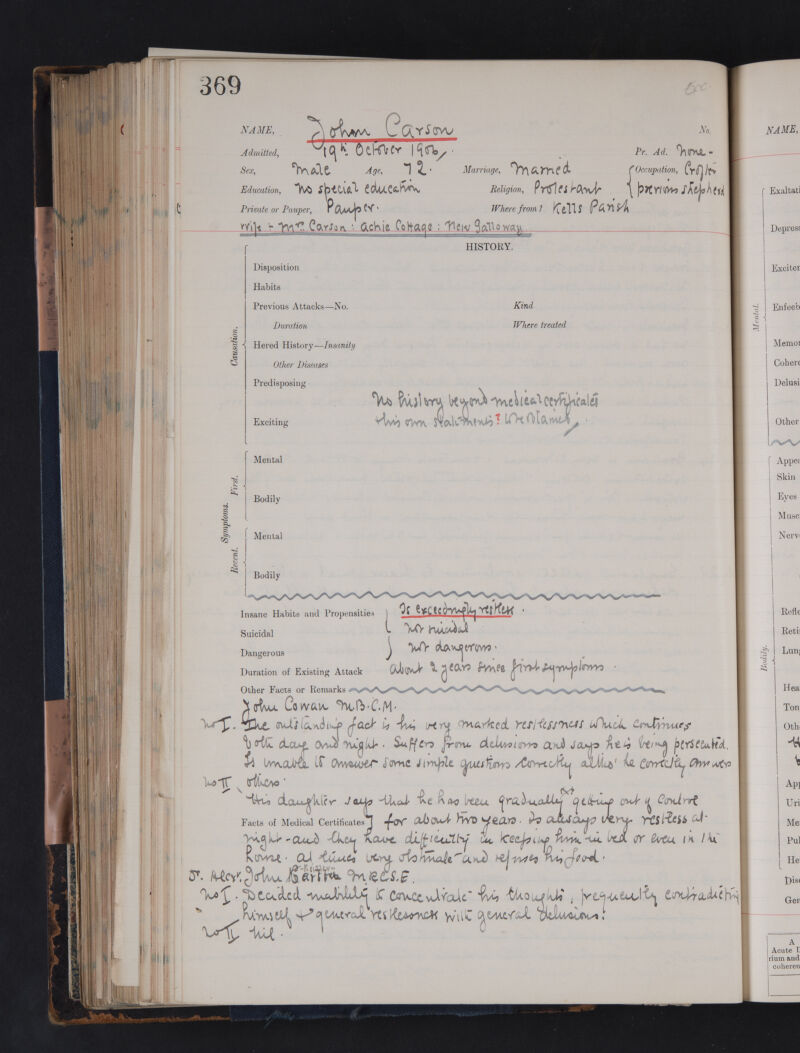 369
NAME, John Carson No.
Admitted, 19th October 1906, Pr. Ad. None -
Sex, Male Age, 72. Marriage, Married Occupation, Crofter
Education, No special education Religion, Protestant previous shepherd
Private or Pauper, Pauper. Where from? Kells Parish
Wife + Mrs. Carson: Achie Cottage: New Galloway
HISTORY.
Disposition
Habits
Previous Attacks—No. Kind
Duration Where treated
Causation.
Hered History—Insanity
Other Diseases
Predisposing
No history beyond medical certificates
Exciting his own statements?
Symptoms. First.
Mental
Bodily
Recent.
Mental
Bodily
Insane Habits and Propensities Is exceedingly restless.
Suicidal Not suicidal
Dangerous Not dangerous.
Duration of Existing Attack About 2 years since first symptoms.
Other Facts or Remarks
John Cowan M.B.C.M.
No I. The outstanding fact is his very marked restlessness which continues
both day and night. Suffers from delusions and says he is being persecuted.
Is unable to answer some simple questions correctly altho' he correctly answers
No II others.
His daughter says that he has been gradually getting out of control
Facts of Medical Certificates for about two years. Is always very restless at
night - and they have difficulty in keeping him in bed or even in the
house. At times very obstinate and refuses his food.
John M.R.C.S.E.
No I. Decided inability to concentrate his thoughts, frequently contradicting
himself + general restlessness with general delusions.
No II Nil.
NAME,
Exaltati
Depress
Exciter
Mental.
Enfeeb
Memor
Cohere
Delusi
Other
Appea
Skin
Eyes
Musc
Nerv
Refle
Reti
Bodily.
Lung
Hea
Ton
Oth
App
Uri
Me
Pul
He
Dise
Gen
A
Acute D
rium and
coheren